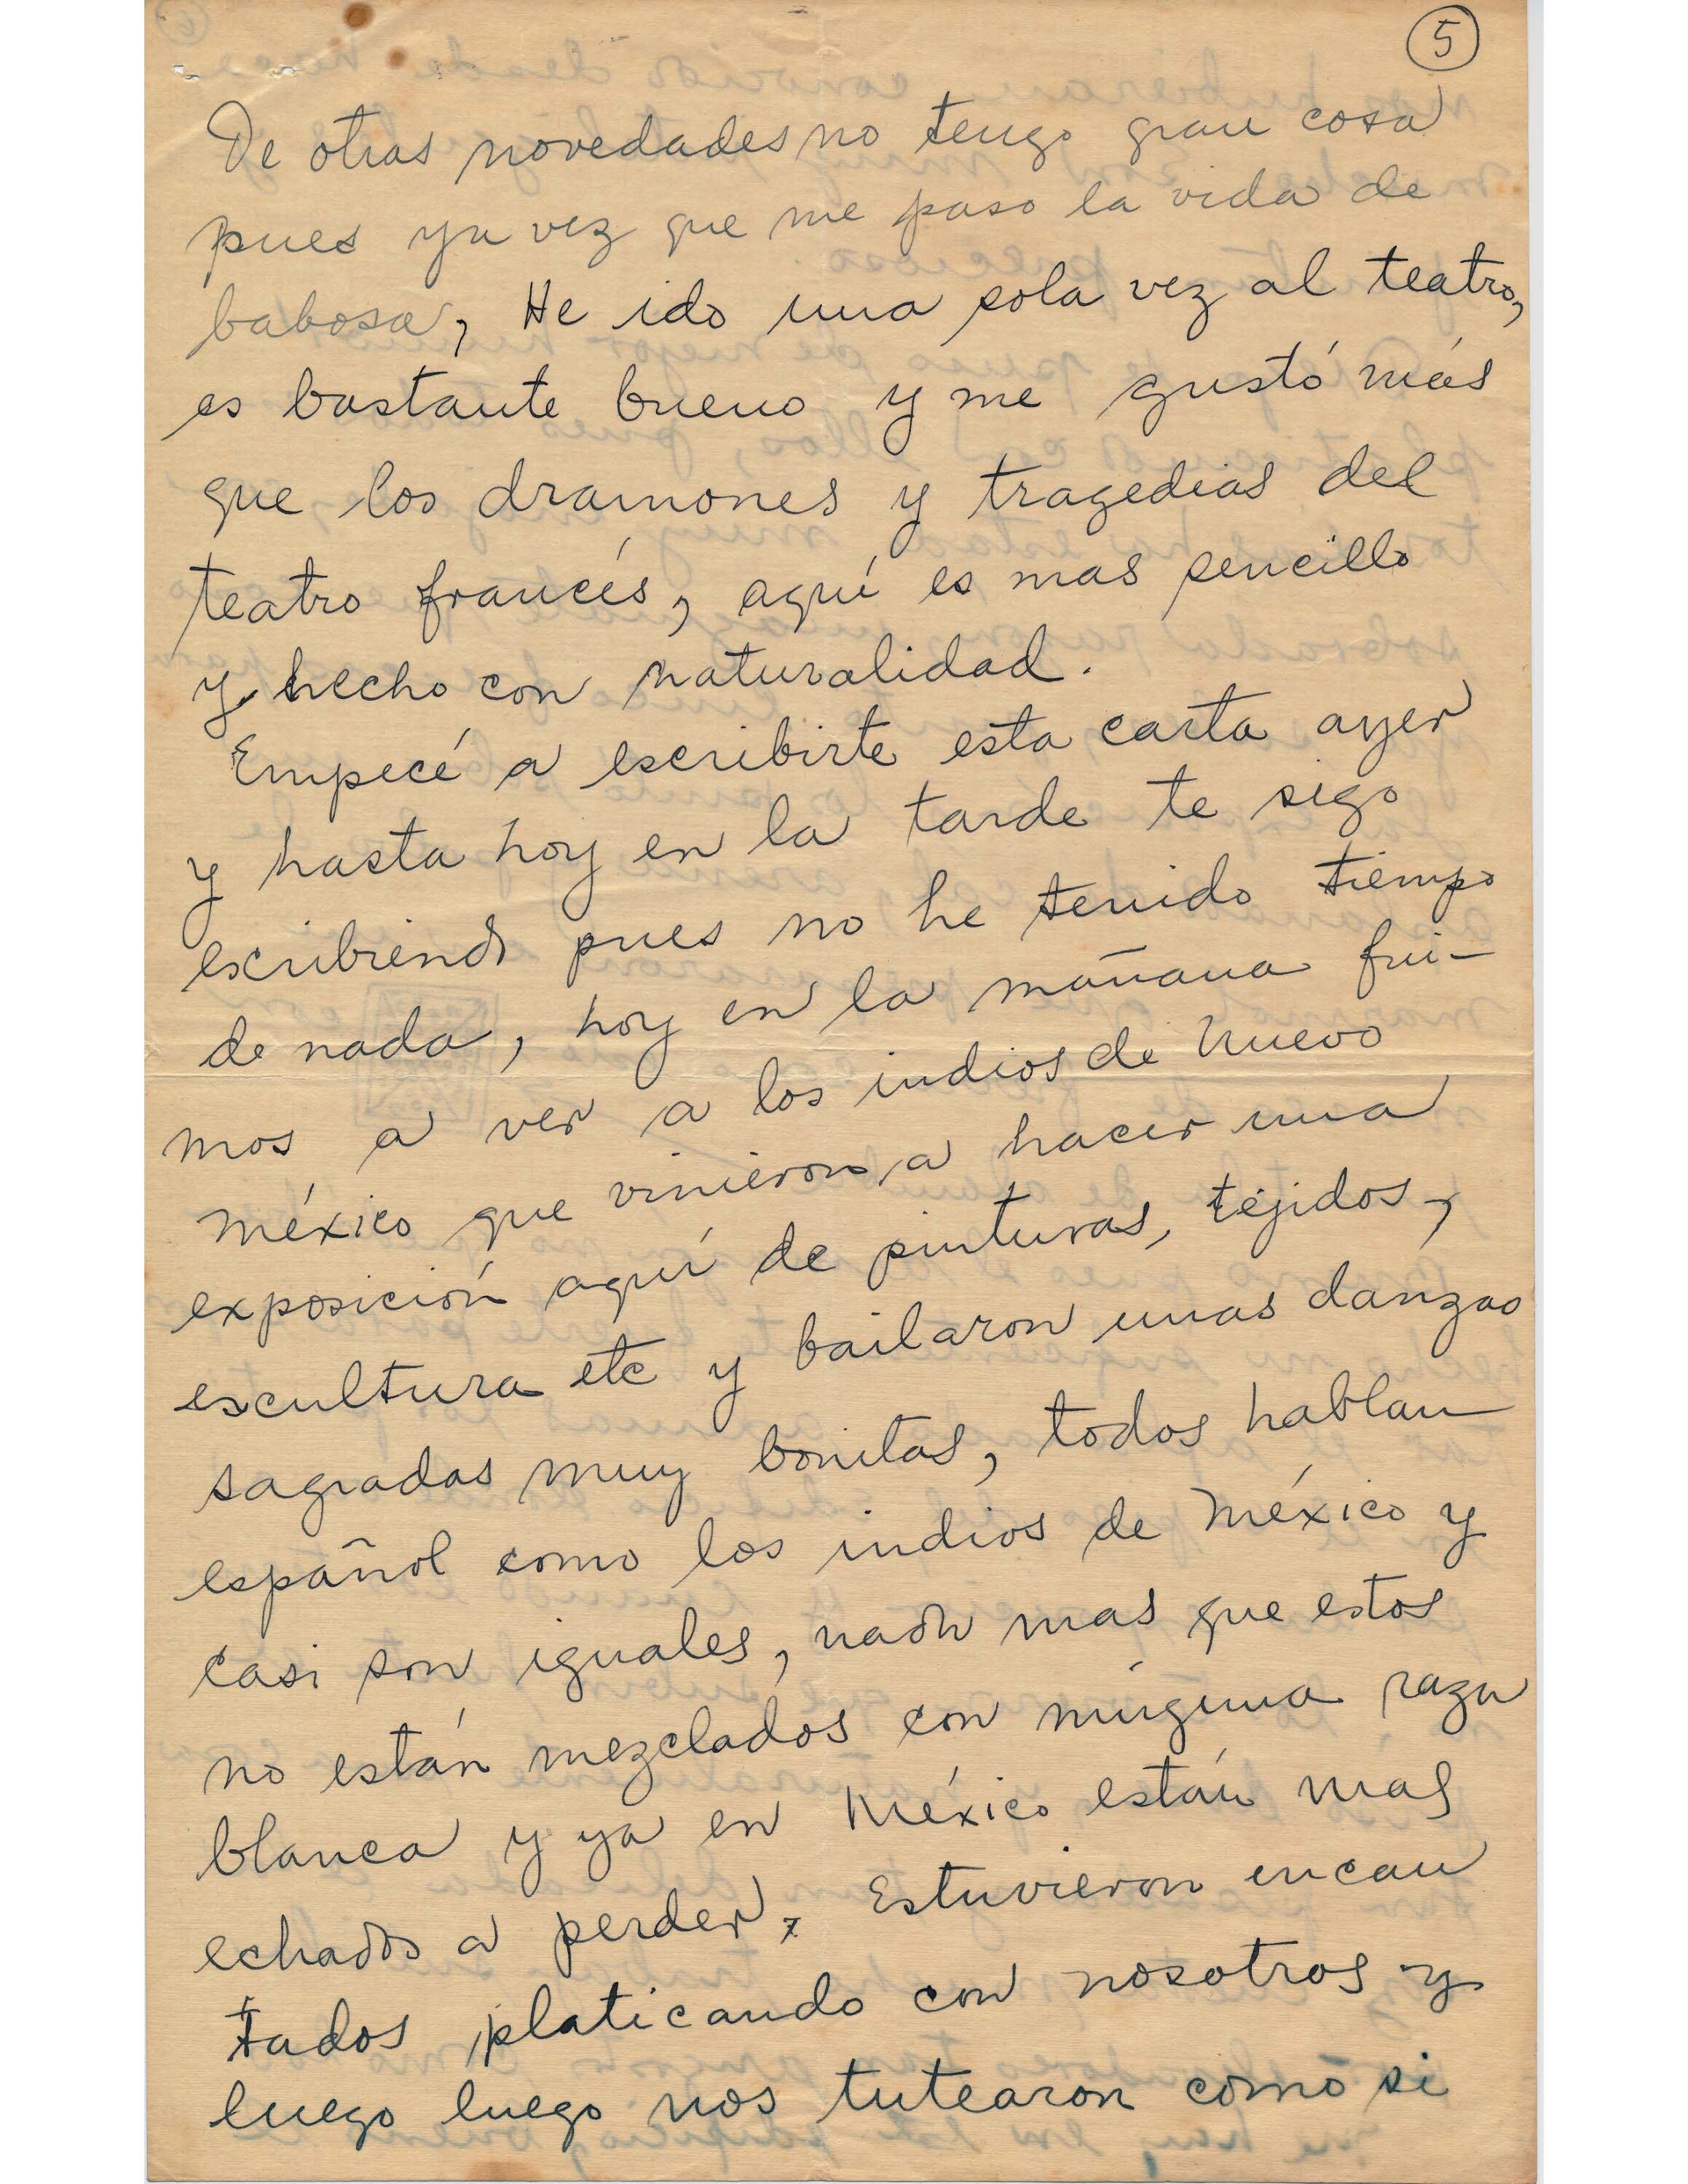 5
De otras novedades no tengo gran cosa
pues ya vez que me paso la vida de
babosa, He ido una sola vez al teatro,
es bastante bueno y me gustó más
que los dramones y tragedias del
teatro francés, aquí es mas sencillo
y hecho con naturalidad.
Empecé a escribirte esta carta ayer
y hasta hoy en la tarde te sigo
escribiendo pues no he tenido tiempo
de nada, hoy en la mañana fui-
mos a ver a los indios de Nuevo
México que vinieron a hacer una
exposición aquí de pinturas, tejidos,
escultura etc y bailaron unas danzas
sagradas muy bonitas, todos hablan
español como los indios de México y
casi son iguales, nada mas que estos
no están mezclados con ninguna raza
blanca y ya en México están mas
echados a perder. Estuvieron encan
tados platicando con nosotros y
luego luego nos tutearon como si